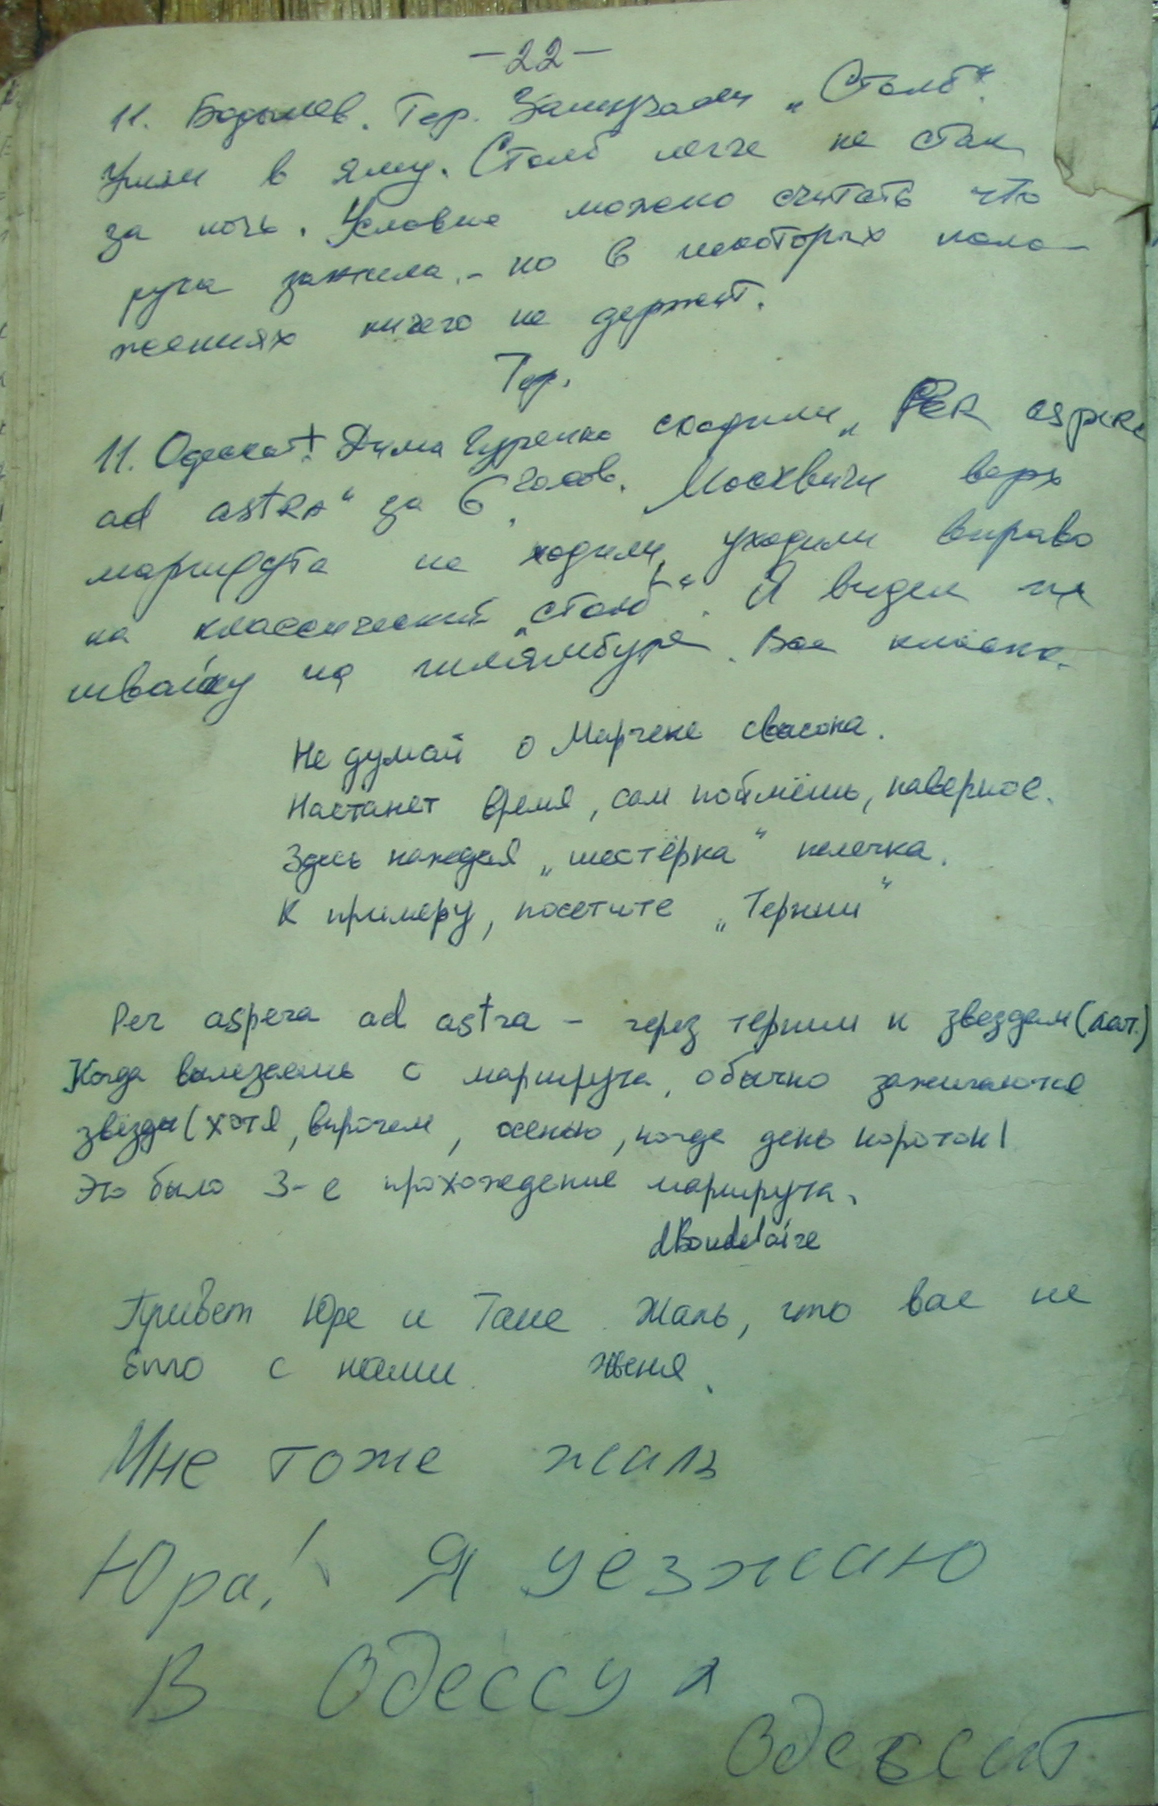 —22—
11. Бодылев. Гор. Замучали „Столб".
Ушли в яму. Столб легче не стал
за ночь. Условно можно считать что
рука зажила. – но в некоторых поло-
жениях ничего не держит.
Гор.
11. Одессит. Дима Гуренко сходили „PER aspera
ad astRA" за 6 часов. Москвичи верх
маршрута не ходили, уходили вправо
на классический „столб". Я видел их
на шлямбуре. Все классно.
Не думай о Марчеке свысока.
Настанет время, сам поймёшь, наверное.
Здесь каждая „шестёрка" нелегка.
К примеру, посетите „Тернии"
Per aspera ad astra – через тернии к звездам (лат.)
Когда вылезаешь с маршрута, обычно зажигаются
звёзды (хотя, впрочем, осенью, когда день короток)
Это было 3-е прохождение маршрута.
Привет Юре и Тане. Жаль, что вас не
было с нами. Женя.
Мне тоже жаль
Юра! Я уезжаю
в Одессу
Одессит